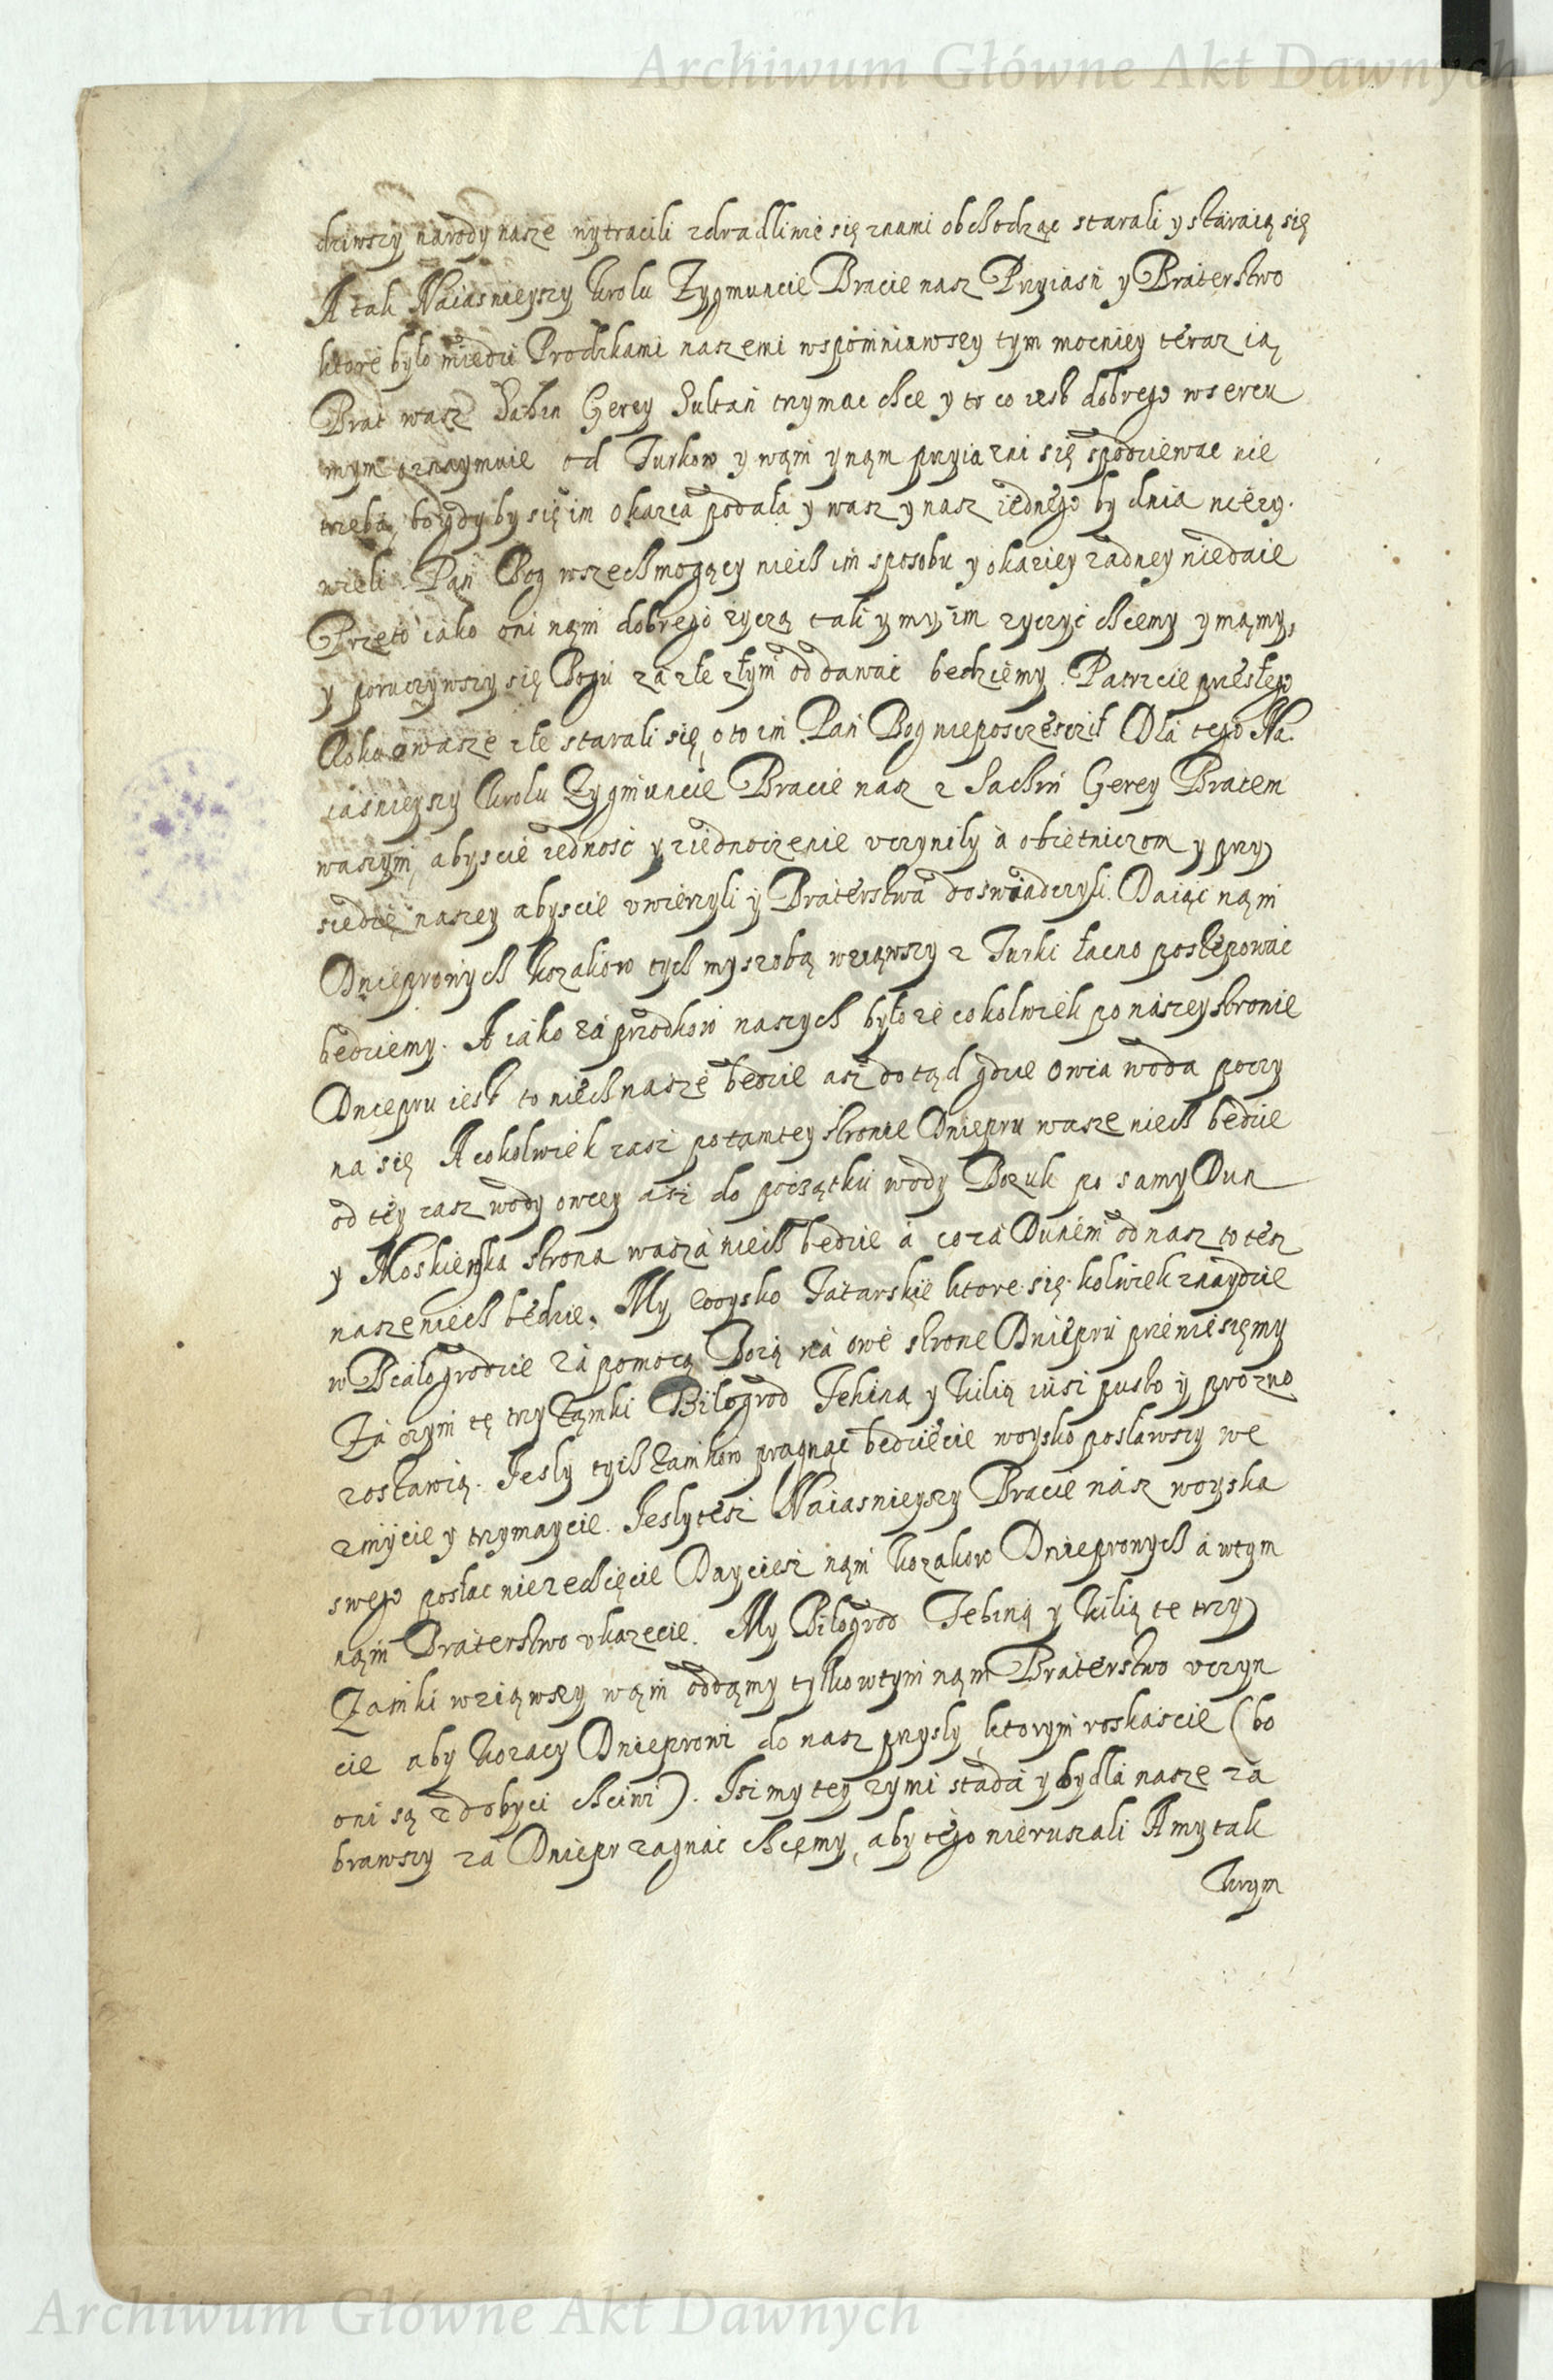 Archiwum Główne Akt Dawnych
dziwszy narody nasze wytracili zdradliwie się znami obchodząc starali y staraią się
A tak Naiasnieyszy Krolu Zygmuncie Bracie nasz Przyiasń y Braterstwo
ktore było miedzi Przodkami naszemi wspomniawszy tym mocniey teraz ia
Brat wasz Sahin Gerey Sultan trzymac chce y to co iest dobrego w sercu
mym oznaymuie od Turkow y wąm y nąm przyiazni się spodziewac nie
trzeba, bo gdyby się im okazia podała y wasz y nasz iednego by dnia nieży-
wieli. Pan Bog wszechmogący niech im sposobu y okaziey żadney niedaie
Przeto iako oni nąm dobrego życzą tak y my im zyczyć chcemy y mąmy,
y poruczywszy się Bogu za złe złym oddawać bedziemy. Patrzcie przeszłego
Roku o wasze złe starali się, oto im Pan Bog nieposzczescził Dla tego Na-
iaśnieyszy Krolu Zygmuncie Bracie nasz z Sachin Gerey Bratem
waszym, abyscie iedność y ziednoczenie vczynily à obietniczom y przy
siedze naszey abyscie vwierzyli y Braterstwa doswiadczyli. Daiąc nąm
Dnieprowych Kozakow tych my szobą wziąwszy z Turki łacno postępowac
bedziemy. A iako za przodkow naszych było że cokolwiek po naszey stronie
Dniepru iest to niech nasze bedzie asz dotąd gdzie Owia woda poczy
na się A cokolwiek zasz po tamtey stronie Dniepru wasze niech bedzie
od tey zasz wody owcey asz do początku wody Bozuk po samy Dun
y Moskiewska strona wasza niech bedzie à co za Dunem od nasz to tesz
nasze niech bedzie. My woysko Tatarskie ktore się kolwiek znaydzie
w Białogrodzie za pomocą Bożą na owe strone Dniepru przeniesiemy
Za czym te trzy Zamki Biłogrod Tehiną y Kilią iusz pusto y prozno
zostawią. Jesly tych Zamkow pragnąć bedziecie woysko poslawszy we
zmycie y trzymaycie. Jeslytesz Naiasnieyszy Bracie nasz woyska
swego posłac niezechcięcie Dayciesz nąm Kozakow Dnieprowych a wtym
nąm Braterstwo vkazecie. My Biłogrod Tehiną y Kilią te trzy
Zamki wziąwszy wąm oddąmy tylko wtym nąm Braterstwo vczyn
cie aby Kozacy Dnieprowi do nasz przysly, ktorym roskascie (bo
oni są zdobyci chciwi). Isz my tey zymi stada y bydla nasze za
brawszy za Dniepr zagnac chcemy, aby tego nieruszali A my tak
Krym
Archiwum Główne Akt Dawnych